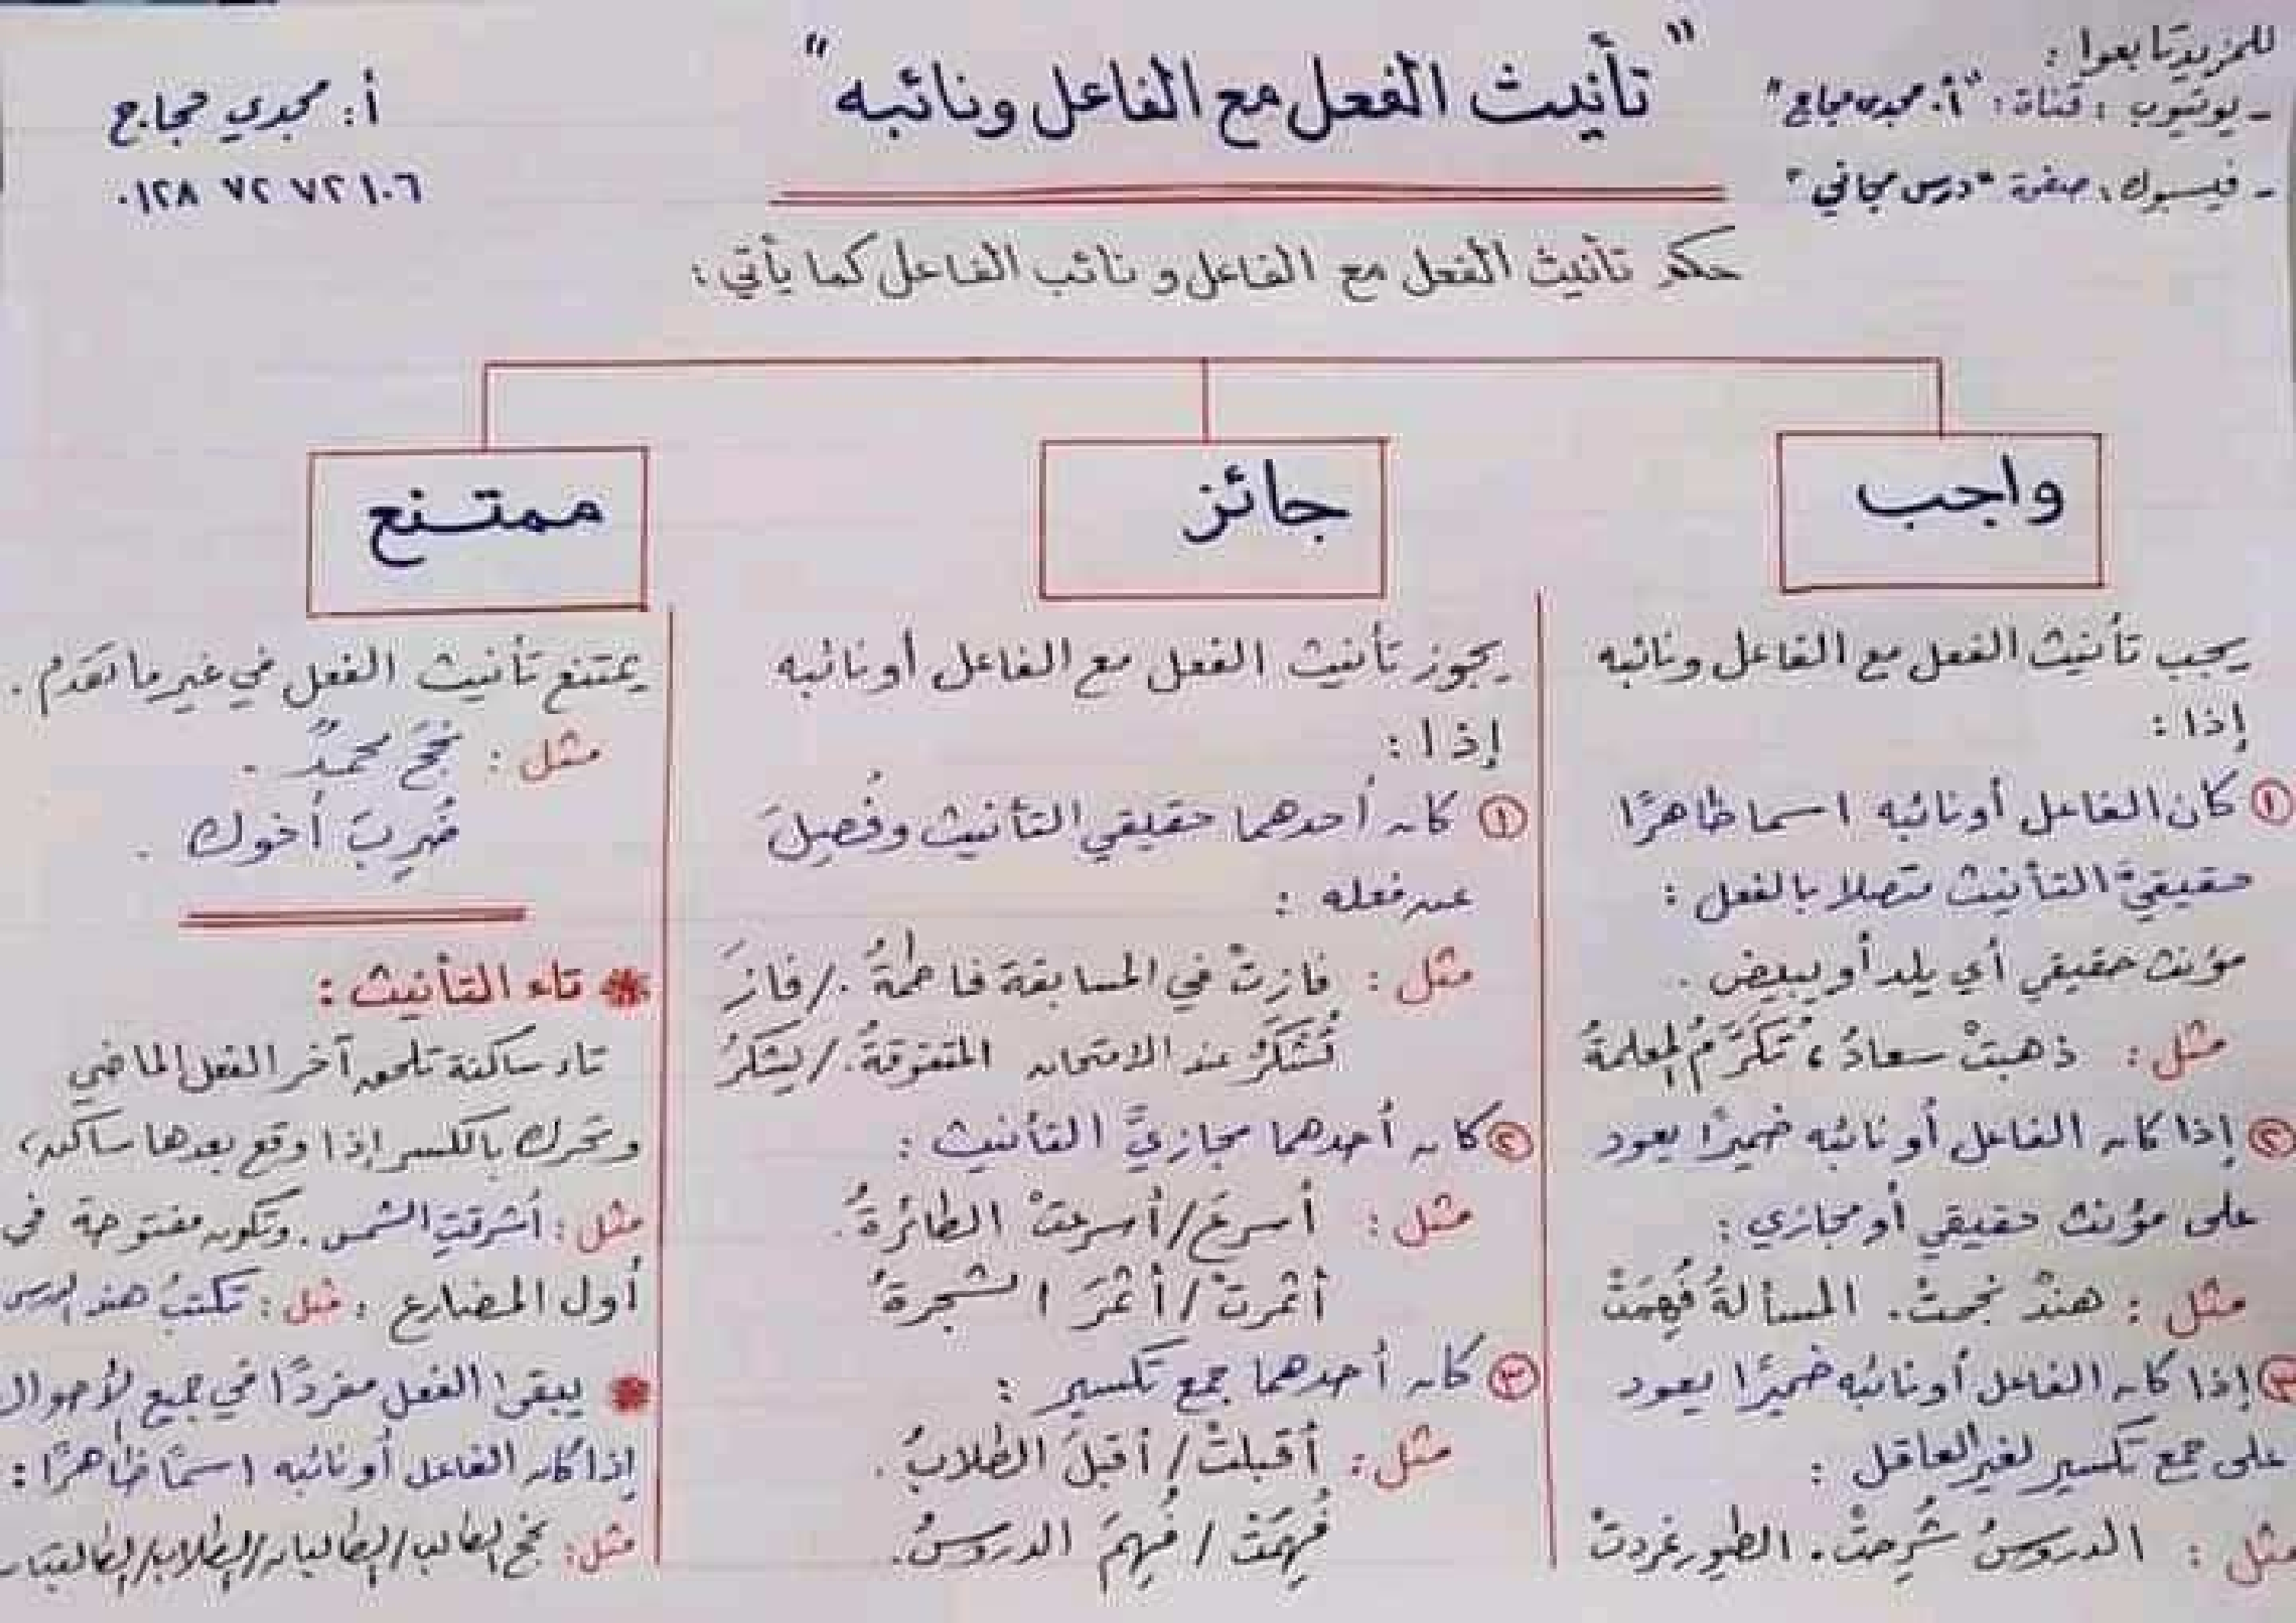 للمزيد تابعوا :
- يوتيوب : قناة : "أ. مجدي حجاج"
- فيسبوك : صفحة "درس مجاني"
"تأنيث الفعل مع الفاعل ونائبه"
أ : مجدي حجاج
٠١٢٨ ٧٢ ٧٢ ١٠٦
حكم تأنيث الفعل مع الفاعل و نائب الفاعل كما يأتي :
واجب
يجب تأنيث الفعل مع الفاعل ونائبه
إذا :
① كان الفاعل أو نائبه اسما ظاهرًا
حقيقيَّ التأنيث متصلا بالفعل :
مؤنث حقيقي أي يلد أو يبيض .
مثل : ذهبتْ سعادُ ، تُكَرَّمُ المعلمةُ
② إذا كان الفاعل أو نائبه ضميرًا يعود
على مؤنث حقيقي أو مجازي :
مثل : هندٌ نجحتْ . المسألةُ فُهِمَتْ
③ إذا كان الفاعل أو نائبه ضميرًا يعود
على جمع تكسير لغير العاقل :
مثل : الدروسُ شُرِحتْ . الطيور غردتْ
جائز
يجوز تأنيث الفعل مع الفاعل أو نائبه
إذا :
① كان أحدهما حقيقي التأنيث وفُصِلَ
عن فعله :
مثل : فازتْ في المسابقة فاطمةُ . / فازَ
تُشْكَرُ عند الامتحان المتفوقةُ . / يُشكرُ
② كان أحدهما مجازيَّ التأنيث :
مثل : أسرعَ / أسرعتْ الطائرةُ .
أثمرتْ / أثمرَ الشجرةُ
③ كان أحدهما جمع تكسير :
مثل : أقبلتْ / أقبلَ الطلابُ .
فُهِمَتْ / فُهِمَ الدروسُ .
ممتنع
يمتنع تأنيث الفعل في غير ما تقدم .
مثل : نجحَ محمدٌ .
ضُرِبَ أخوك .
* تاء التأنيث :
تاء ساكنة تلحق آخر الفعل الماضي
وتحرك بالكسر إذا وقع بعدها ساكن ،
مثل : أشرقتِ الشمس . وتكون مفتوحة في
أول المضارع : مثل : تكتبُ هند الدرس
* يبقى الفعل مفردًا في جميع الأحوال
إذا كان الفاعل أو نائبه اسمًا ظاهرًا :
مثل : نجح الطالب / الطالبان / الطلاب / الطالبات